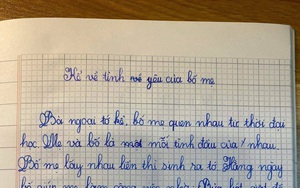 Kể về tình yêu của bố mẹ
Bà ngoại tớ kể, bố mẹ quen nhau từ thời đại
học. Mẹ và bố là mối tình đầu của nhau.
Bố mẹ lấy nhau liền thì sinh ra tớ. Hàng ngày
bố giúp mẹ làm công việc nhà.